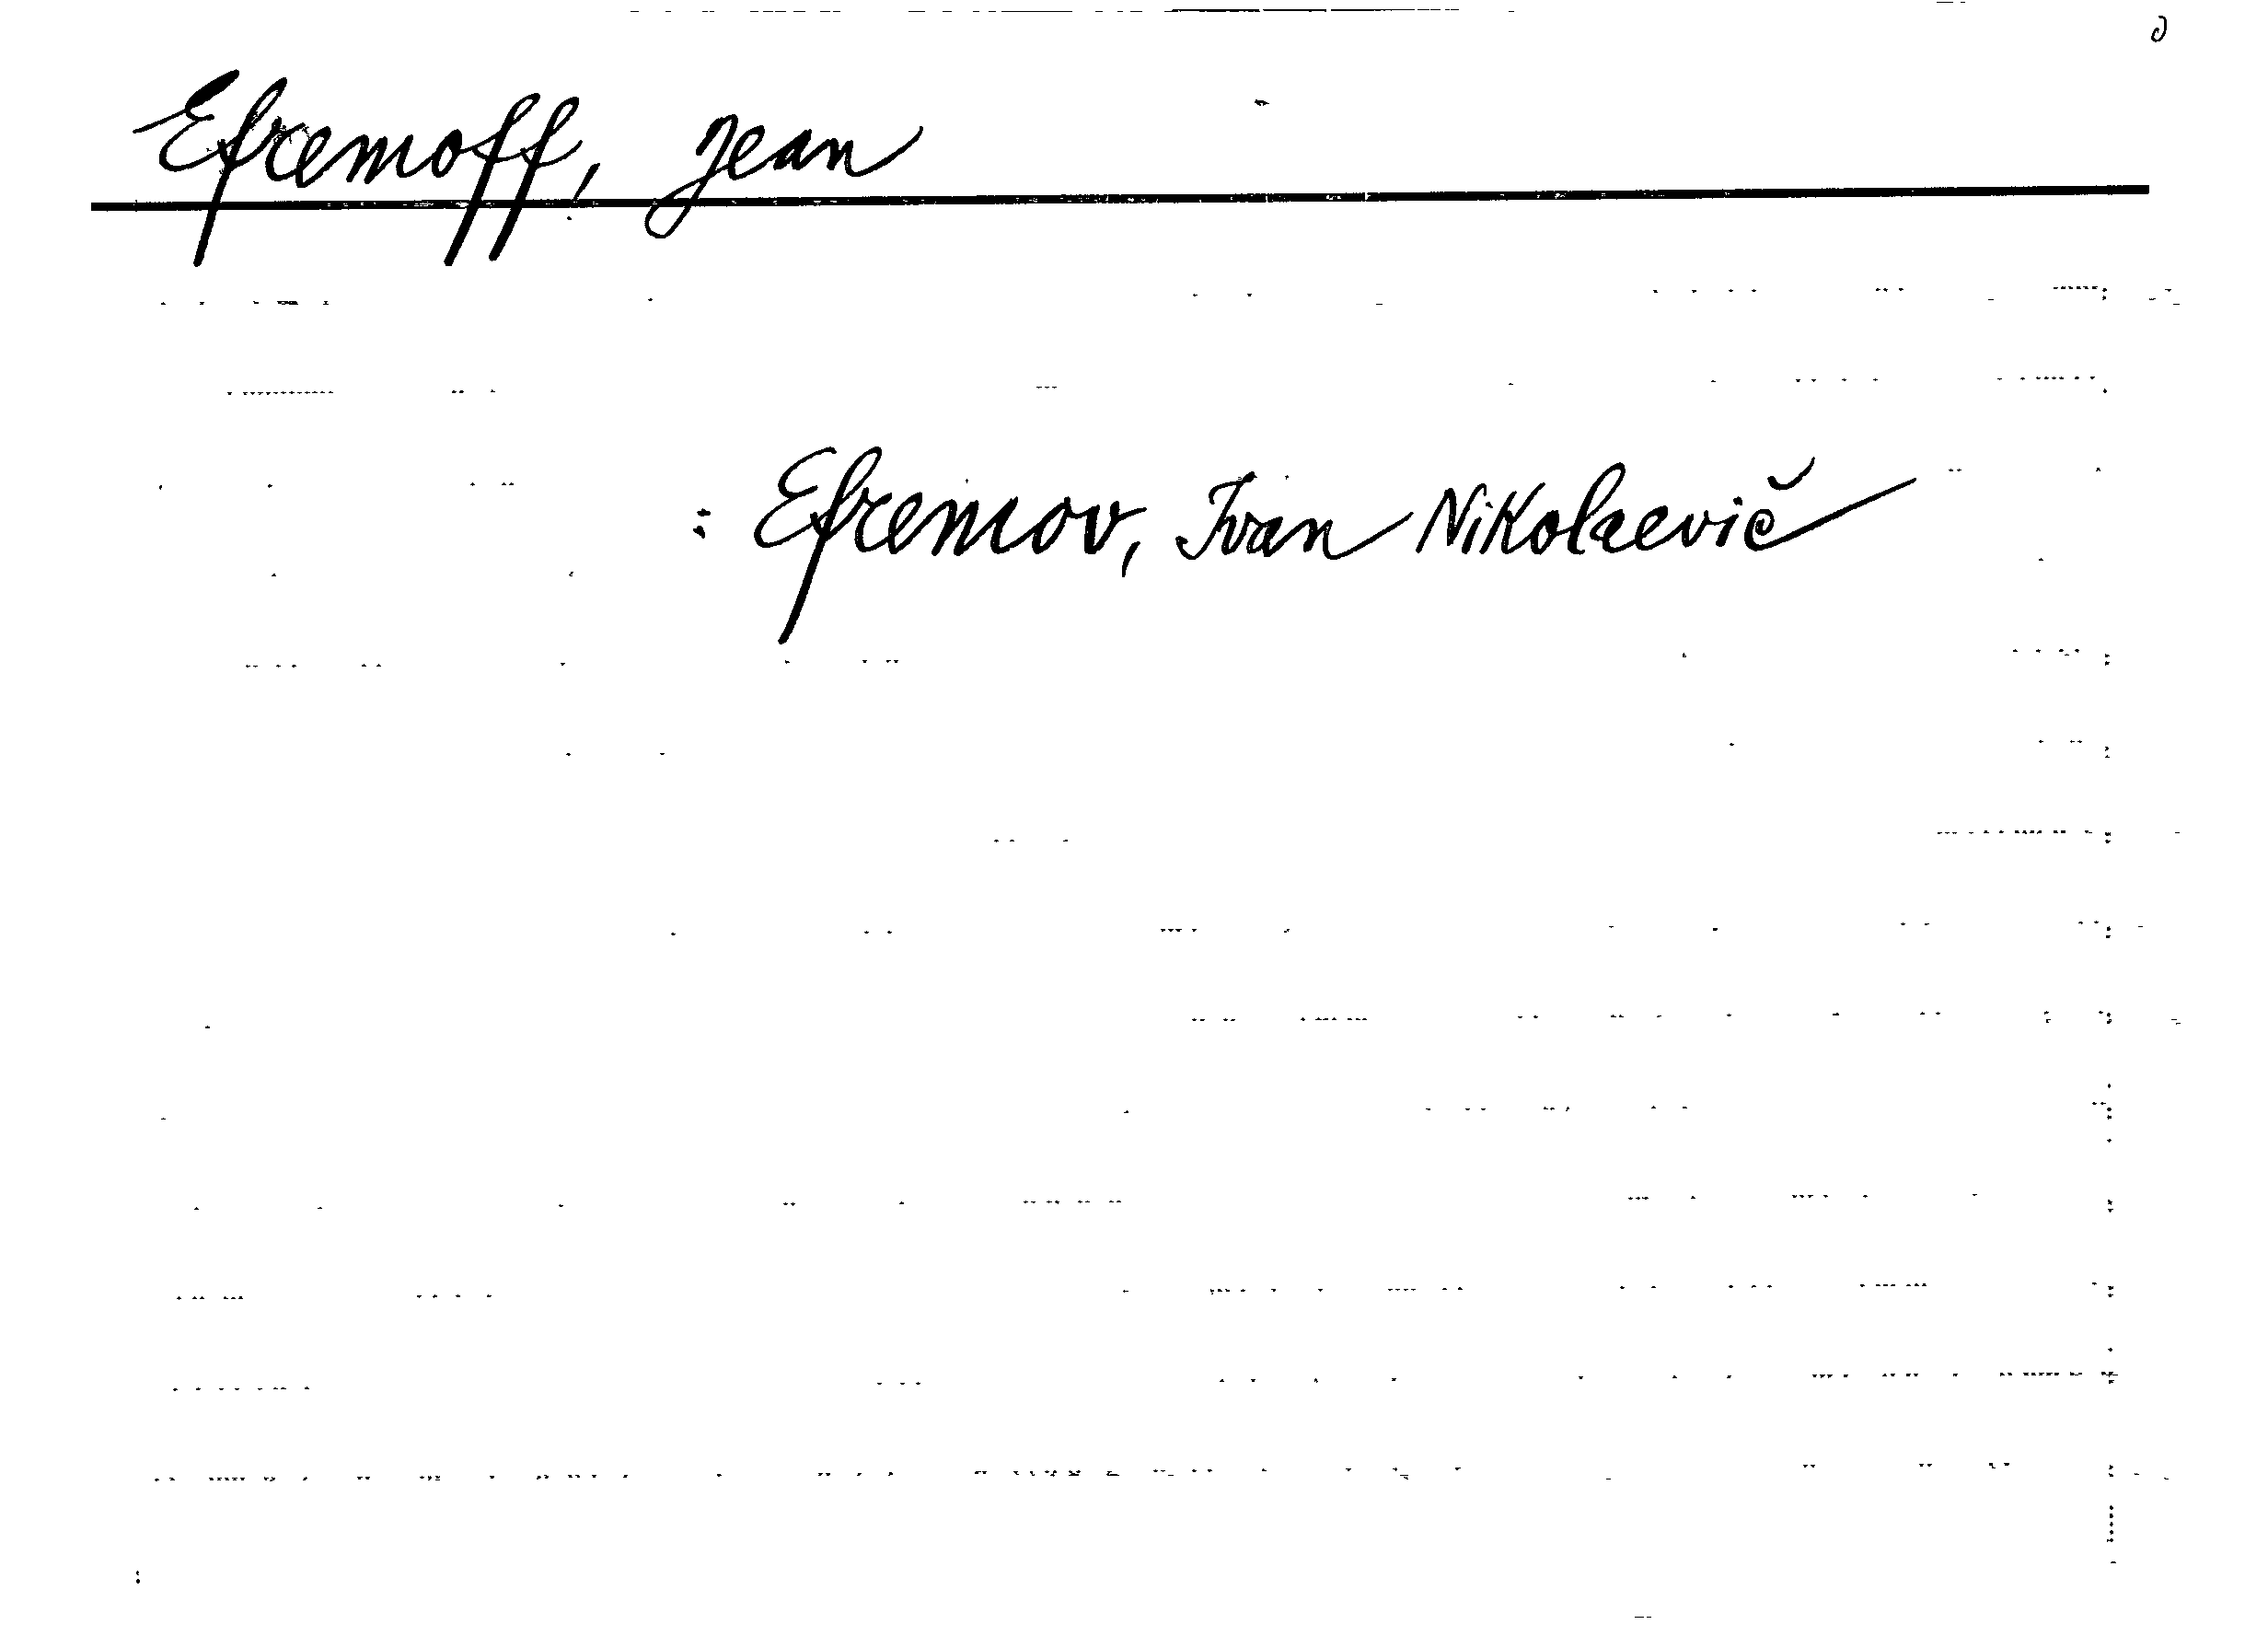 Efremoff, Jean
: Efremov, Ivan Nikolaevič